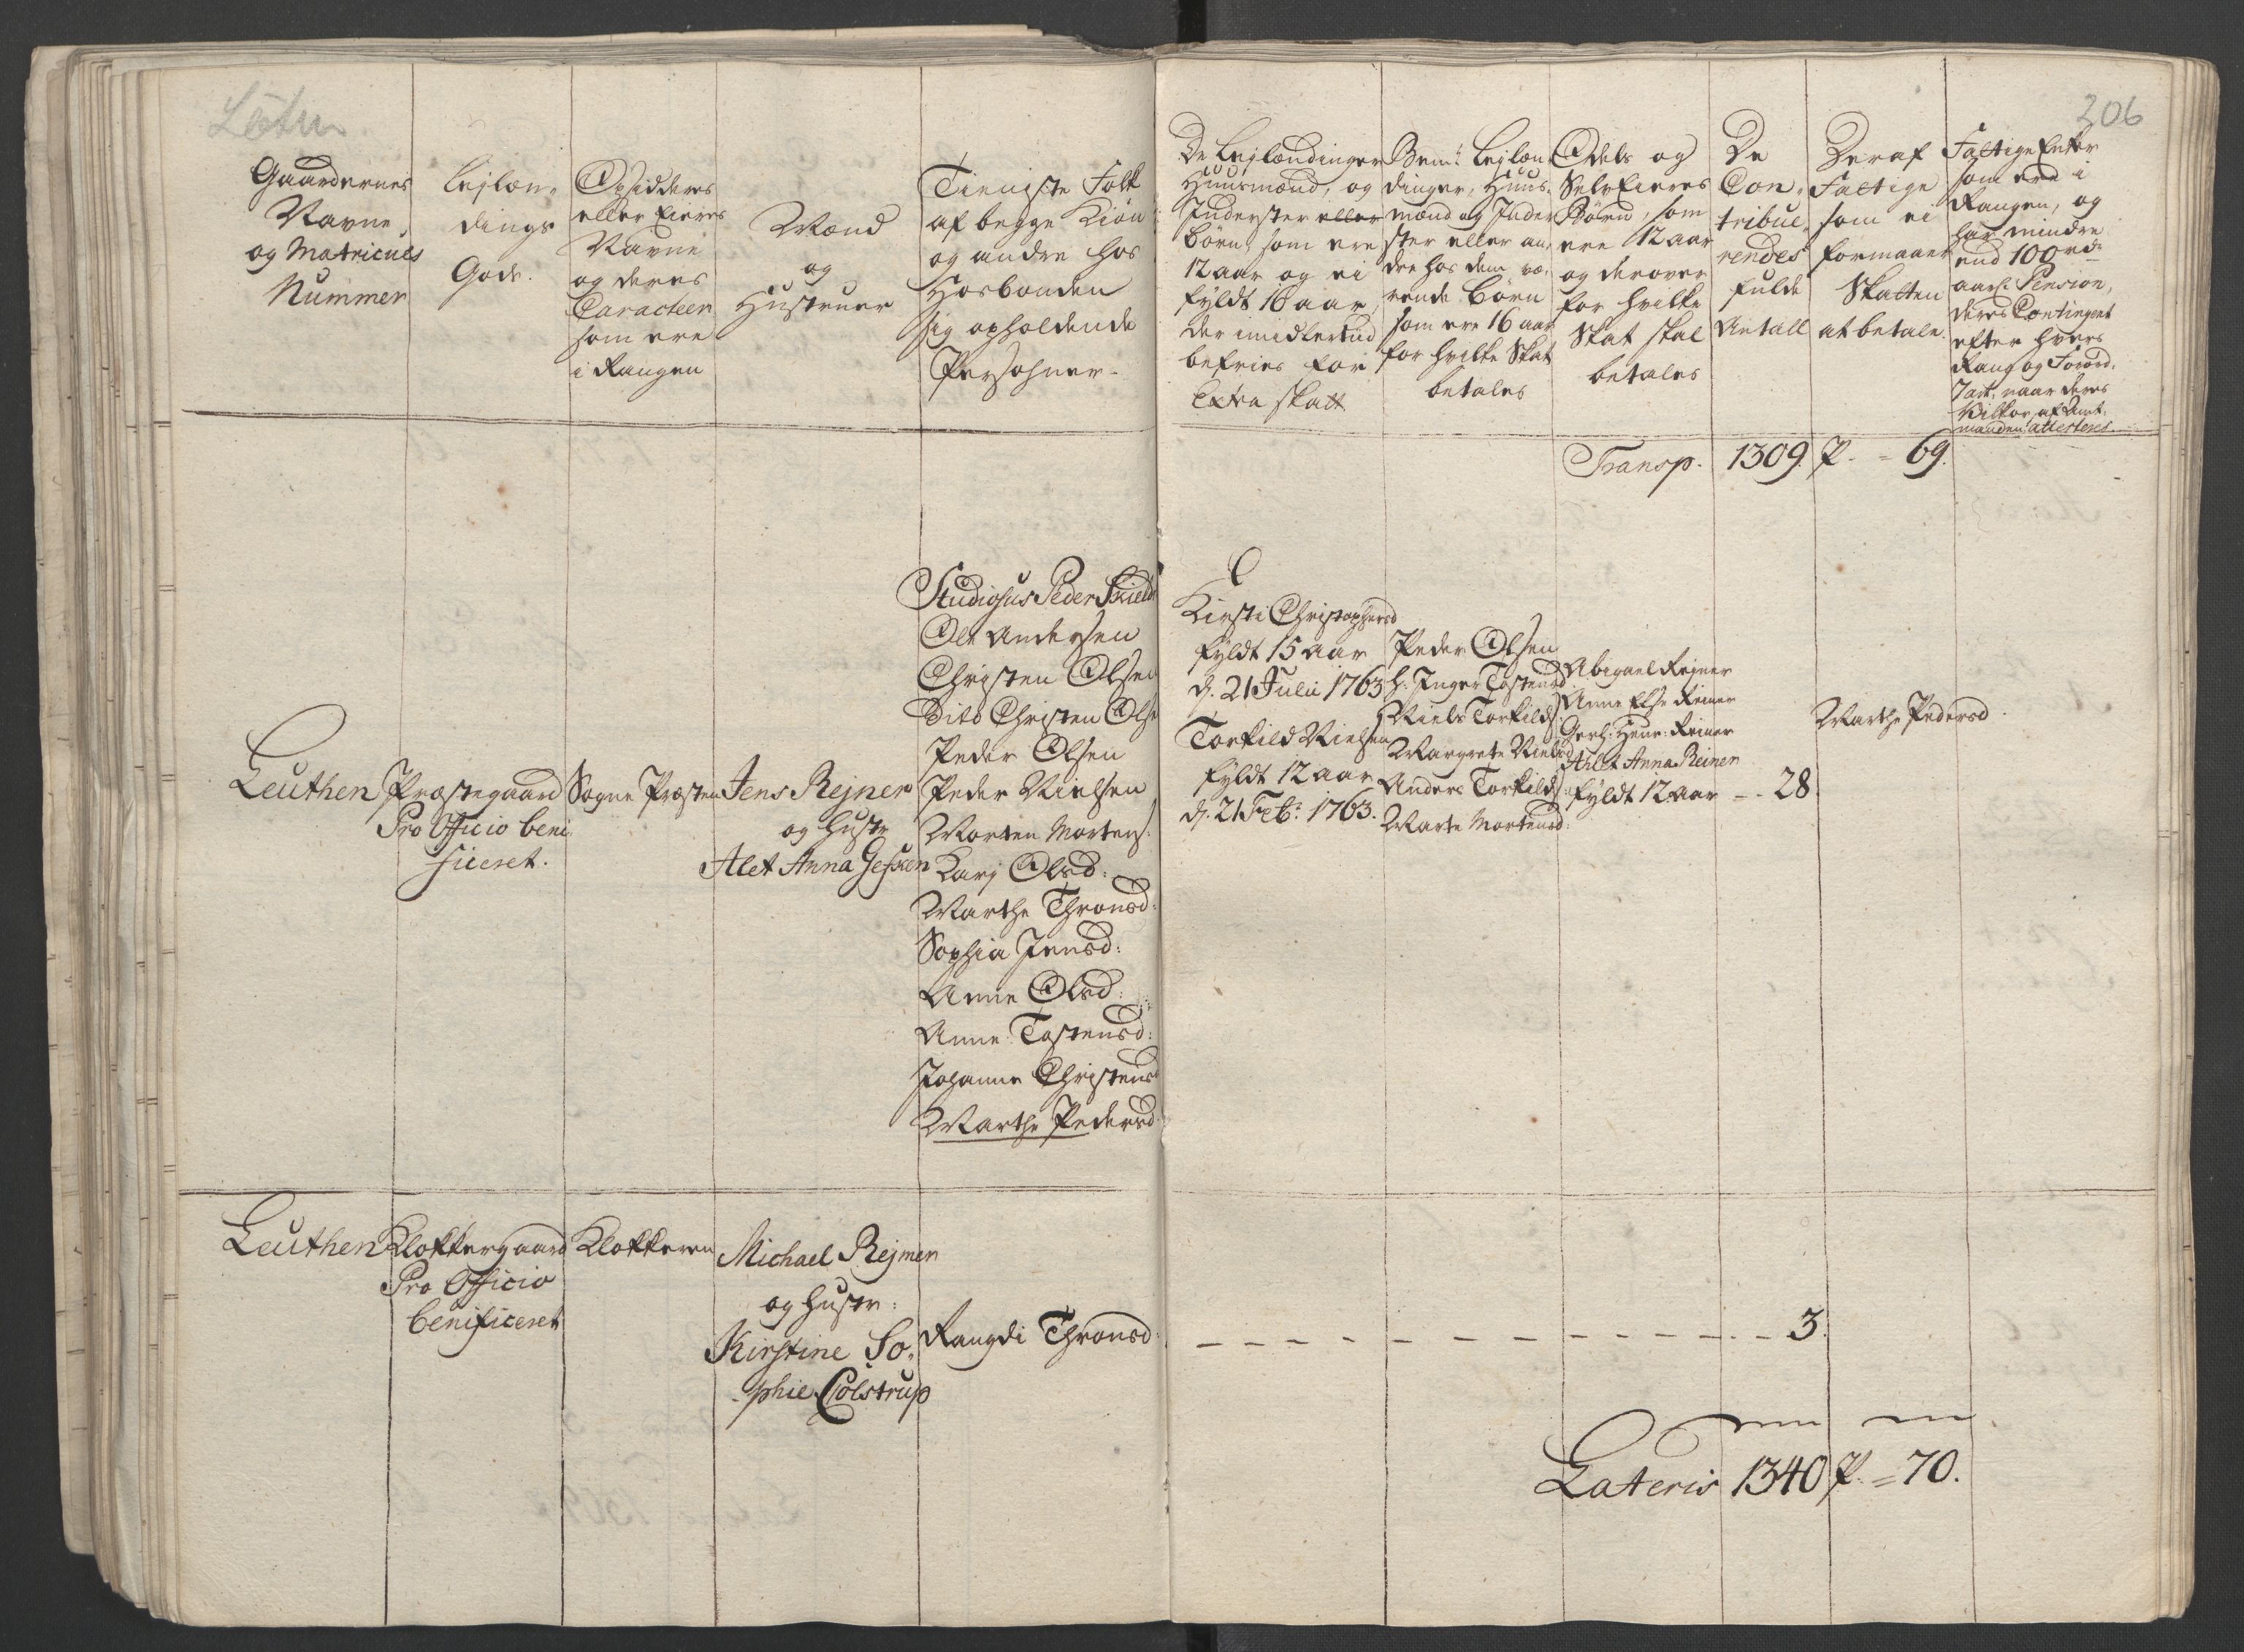 Løten
206
Gaardernes
Navne,
og Matriculs
Nummer
Lejlæn-
dings
Gods.
Opsidderes
eller Eieres
Navne
og deres
Caracteer
som ere
i Rangen
Mænd
og
Hustruer
Tieniste Folk
af begge Kiøn
og andre hos
Hosbonden
sig opholdende
Persohner.
De Lejlændinger
Huusmænd, og
Inderster eller
Børn, som ere
12 aar og ei
fyldt 16 aar,
der imidlertiid
befries for
Extra skatt
Bem.te Lejlæn
dinger, Huus-
mænd og Inder
ster eller an-
dre hos dem væ-
rende Børn
som ere 16 aar
for hvilke Skat
betales
Odels og
Selveieres
Børn, som
ere 12 aar
og derover
for hvilke
Skat skal
betales
De
Con-
tribue-
rendes
fulde
Antall
Deraf
Fattige
som ei
formaaer
Skatten
at betale.
Fattige Enker
som ere i
Rangen, og
har mindre
end 100 rd
aarl. Pension,
deres Contingent
efter hvers
Rang og Forord.
7 art. naar deres
Vilkor af Amt-
manden attesteres.
Transp. 1309 P. = 69.
Leuthen
Præstegaard
Pro Officio beni
ficeret.
Sogne Præsten
Jens Rejner
og Hustr
Alet Anna Gessen
Studiosus Peder Skield
Ole Andersen
Christen Olsen
Dito Christen Olse
Peder Olsen
Peder Nielsen
Morten Mortens:
Kary Olsd:
Marthe Thronsd:
Sophia Jensd:
Anne Olsd:
Anne Tostensd:
Johanne Christensd
Marthe Pedersd
Kirsti Christophersd
fyldt 15 aar
d. 21 Julii 1763
Torkild Nielsen
fyldt 12 aar
d. 21 Feb: 1763.
Peder Olsen
h: Inger Tostensd
Niels Torkilds:
Margrete Nielsd
Anders Torkilds:
Marte Mortensd:
Abigael Rejner
Anne Else Reiner
Gerh: Henr: Reiner
Alet Anna Reiner
fyldt 12 aar - - 28
Marthe Pedersd.
Leuthen
Klokkergaard
Pro Officio
benificeret
Klokkeren
Michael Rejmer
og Hustr:
Kirstine So-
phie Colstrup
Rangdi Thronsd:
- - - - - - - - - - - - 3.
Lateris 1340 P. = 70.